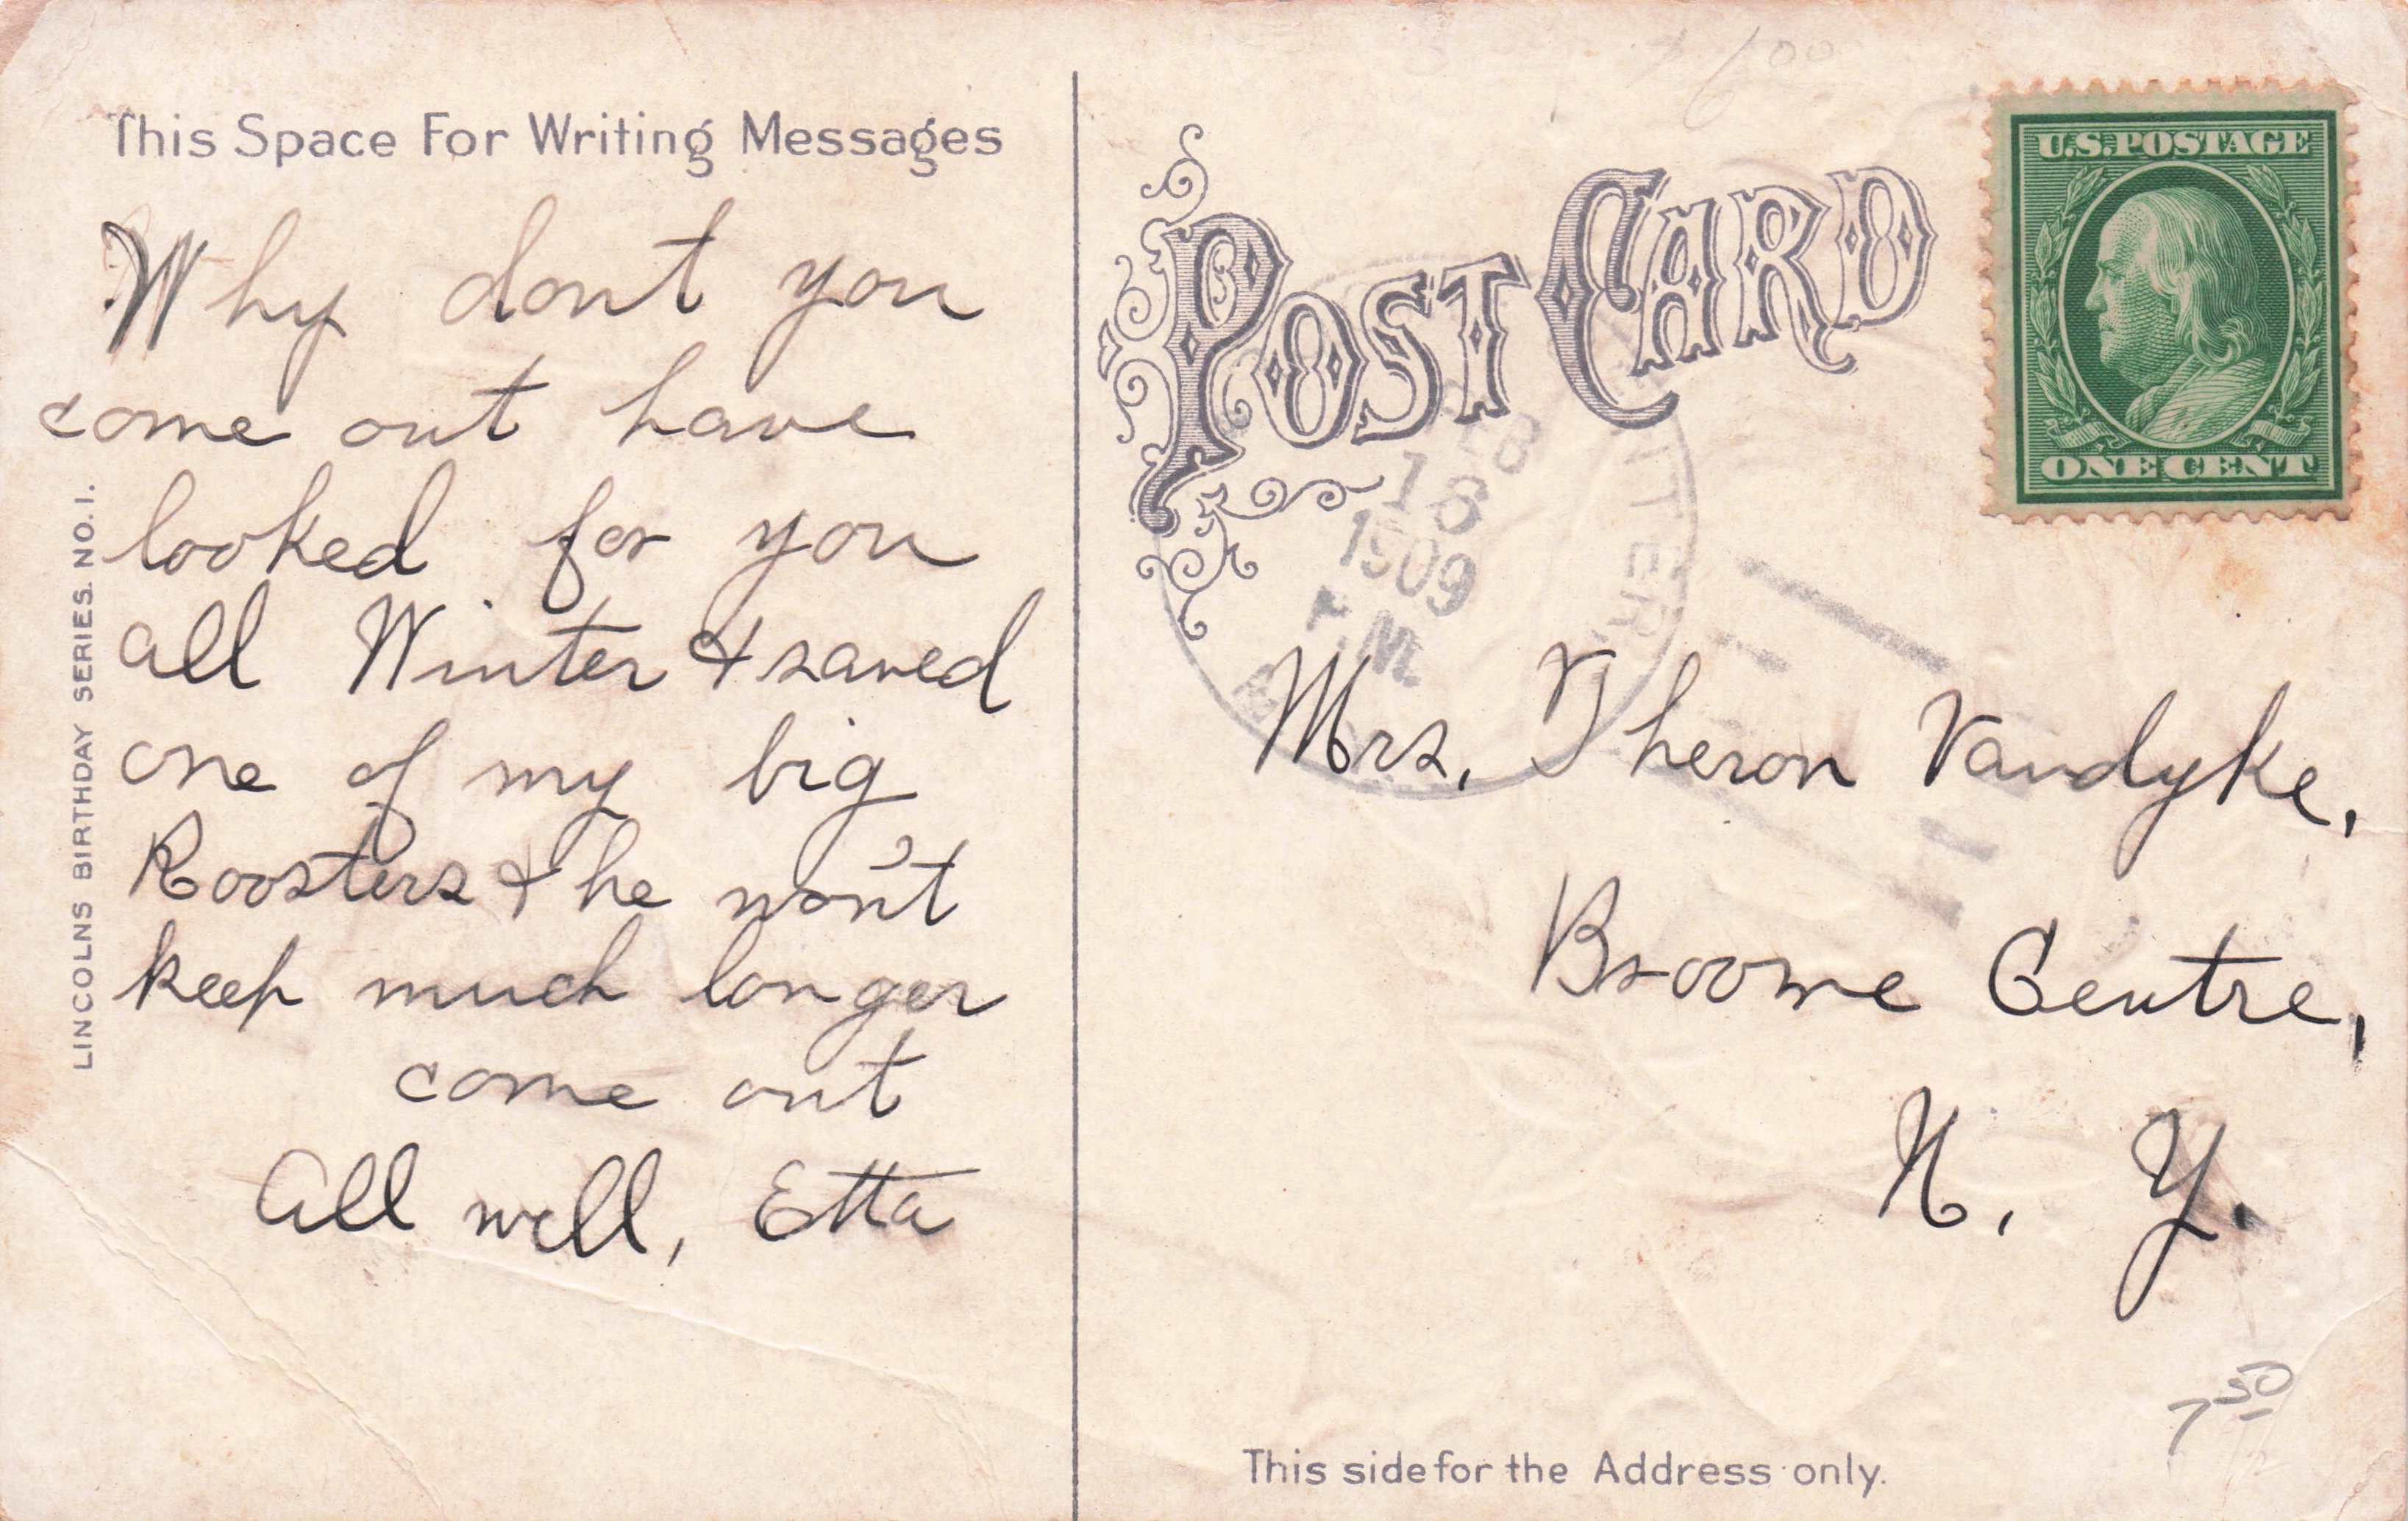 This Space For Writing Messages
Why dont you
come out have
looked for you
all Winter & saved
one of my big
Roosters & he won't
keep much longer
come out
All well, Etta
LINCOLNS BIRTHDAY SERIES. NO. 1.
POST CARD
U.S. POSTAGE
ONE CENT
1909
Mrs. Theron Vandyke,
Broome Centre,
N. Y.
7 50
This side for the Address only.
600